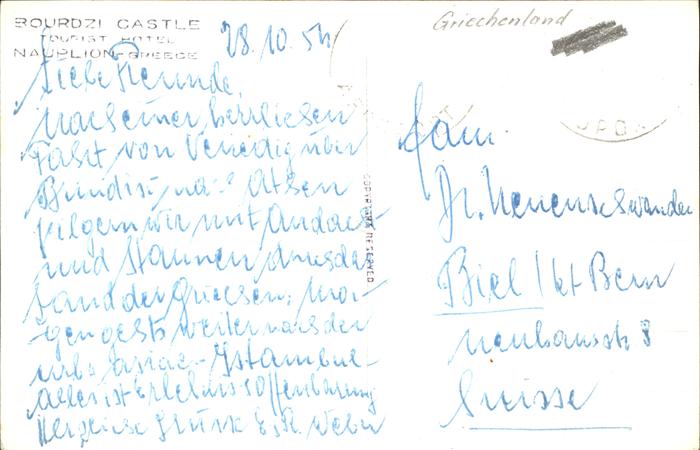 BOURDZI CASTLE
TOURIST HOTEL
NAUPLION-GREECE
28.10.54
Liebe Freunde,
nach einer herrlichen
Fahrt von Venedig über
Brindisi nach Athen
pilgern wir mit Andacht
und Staunen durch das
Land der Griechen; Mor-
gen geht's weiter nach der
Istambul -
alles ist Erlebnis & Offenbarung
Herzliche Grüsse E. & R. Weber
COPYRIGHT RESERVED
Griechenland
Fam.
Dr. Neuenschwander
Biel / kt Bern
Neuhausstr 8
Suisse